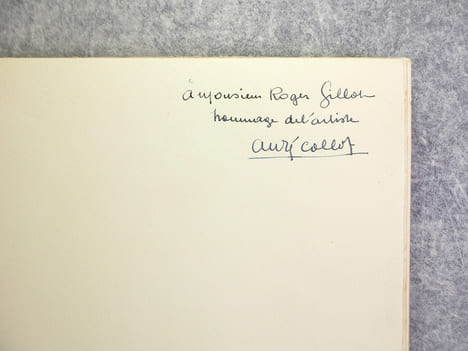 à Monsieur Roger Gillot
hommage de l'artiste
André Collot